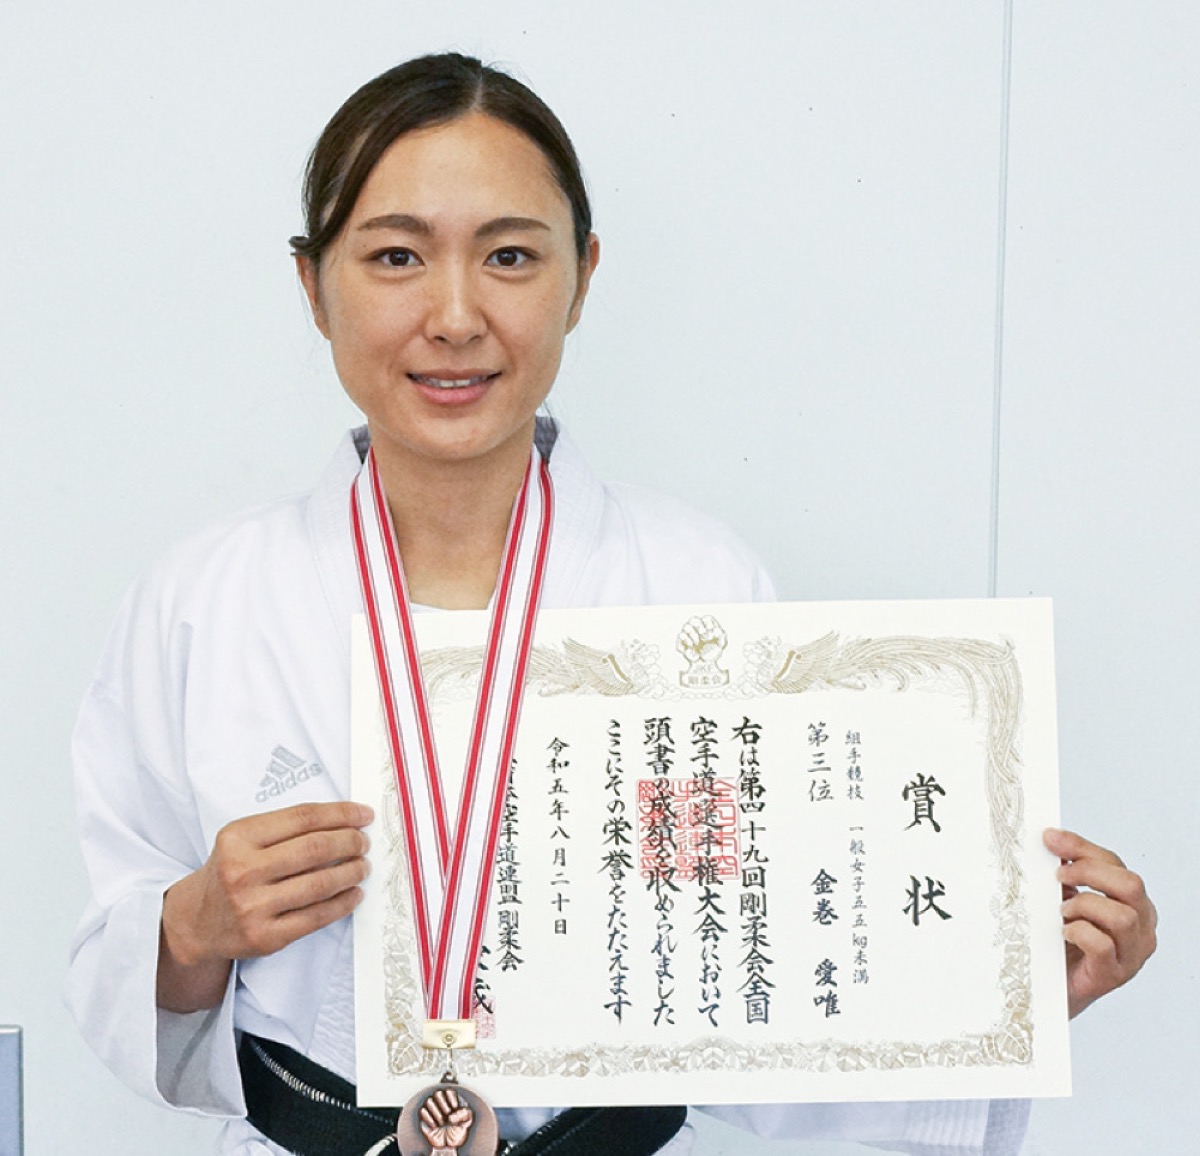 賞状
組手競技 一般女子五五kg未満
第三位 金巻 愛唯
右は第四十九回剛柔会全国
空手道選手権大会において
頭書の成績を収められました
ここにその栄誉をたたえます
令和五年八月二十日
空手道連盟 剛柔会
剛柔会
adidas